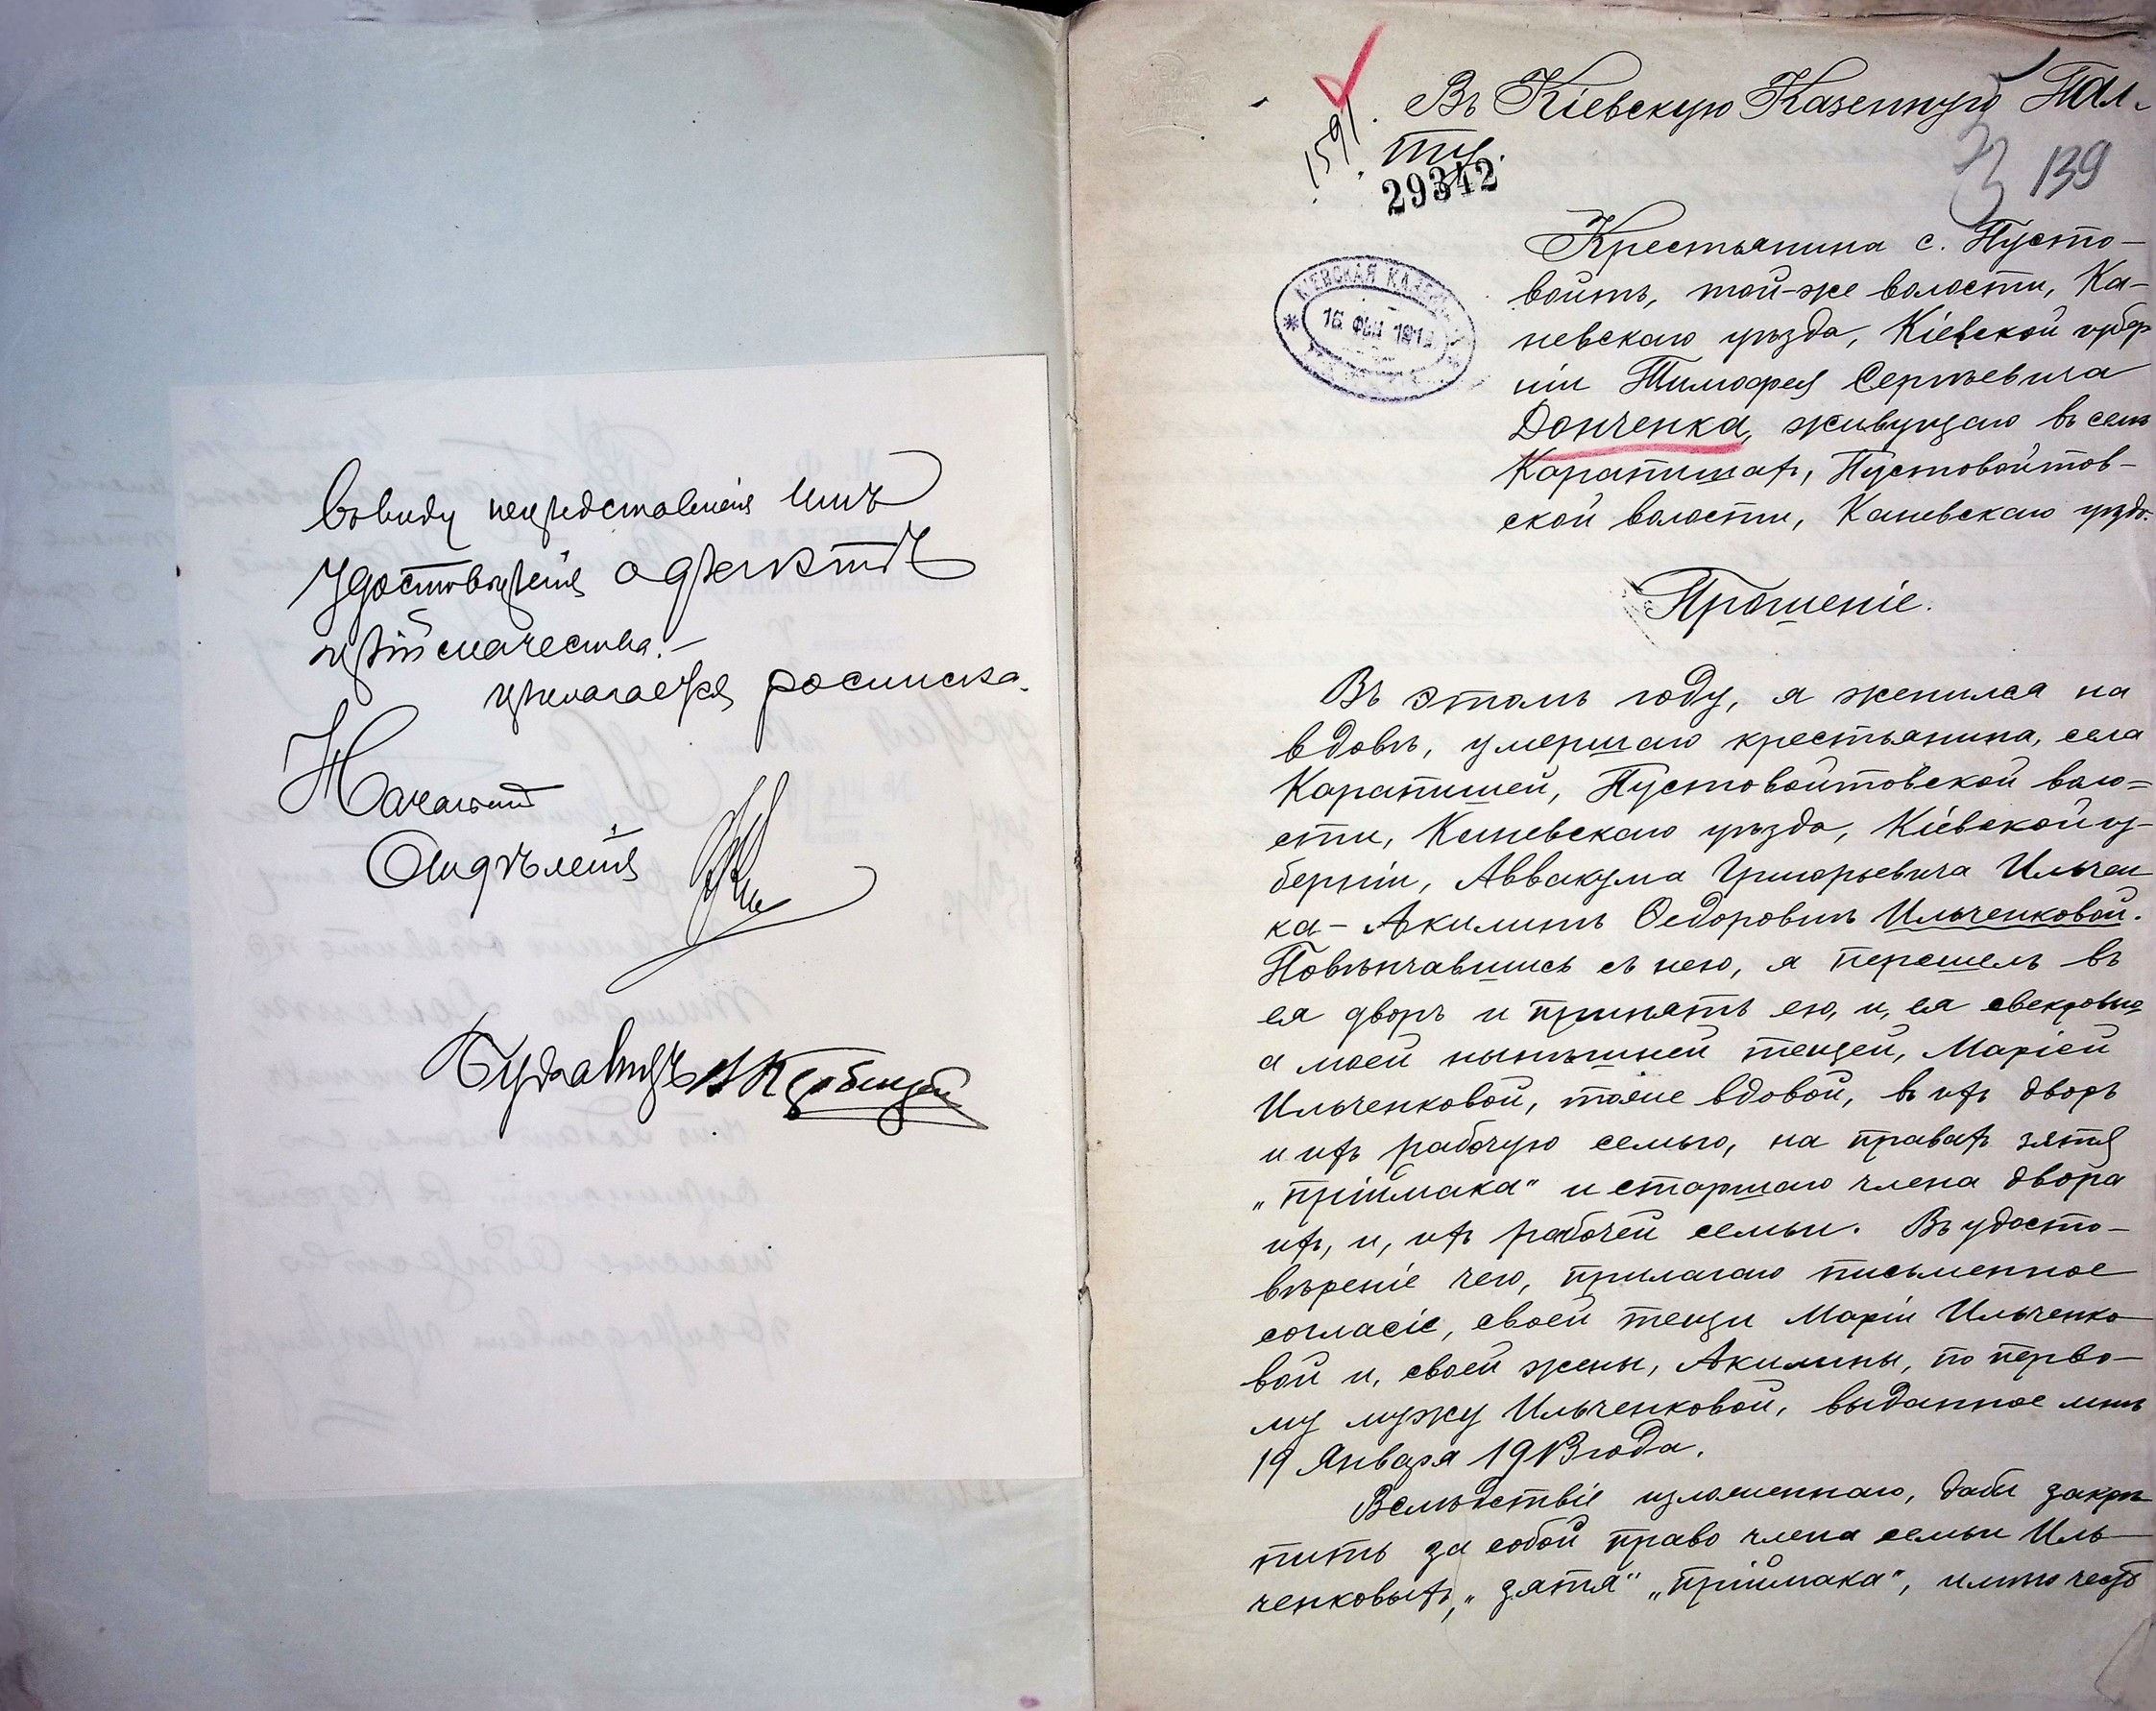 Ввиду непредставленія имъ
удостоверенія о фактѣ
пріймачества.–
прилагается росписка.
Начальникъ
Отдѣленія
Въ Кіевскую Казенную Пала-
ту.
1591
29342
139
КІЕВСКАЯ КАЗЕН
16 ФЕВ 1913
Крестьянина с. Пусто-
войтъ, той-же волости, Ка-
невскаго уѣзда, Кіевской губер
ніи Тимофея Сергѣевича
Донченка, живущаго въ селѣ
Карапишахъ, Пустовойтов-
ской волости, Каневскаго уѣзда.
Прошеніе.
Въ этомъ году, я женился на
вдовѣ, умершаго крестьянина, села
Карапишей, Пустовойтовской воло=
сти, Каневскаго уѣзда, Кіевской гу-
берніи, Аввакума Григорьевича Ильчен
ка – Акилинѣ Ѳедоровнѣ Ильченковой.
Повѣнчавшись съ нею, я перешелъ въ
ея дворъ и принятъ ею, и, ея свекровью
а моей нынѣшней тещей, Маріей
Ильченковой, тоже вдовой, въ ихъ дворъ
и ихъ рабочую семью, на правахъ зятя
„пріймака" и старшаго члена двора
ихъ, и, ихъ рабочей семьи. Въ удосто-
вѣреніе чего, прилагаю письменное
согласіе, своей тещи Маріи Ильченко
вой и, своей жены, Акилины, по перво-
му мужу Ильченковой, выданное мнѣ
19 Января 1913 года.
Вслѣдствіе изложеннаго, дабы закрѣ
пить за собой право члена семьи Иль-
ченковыхъ, „зятя" „пріймака",